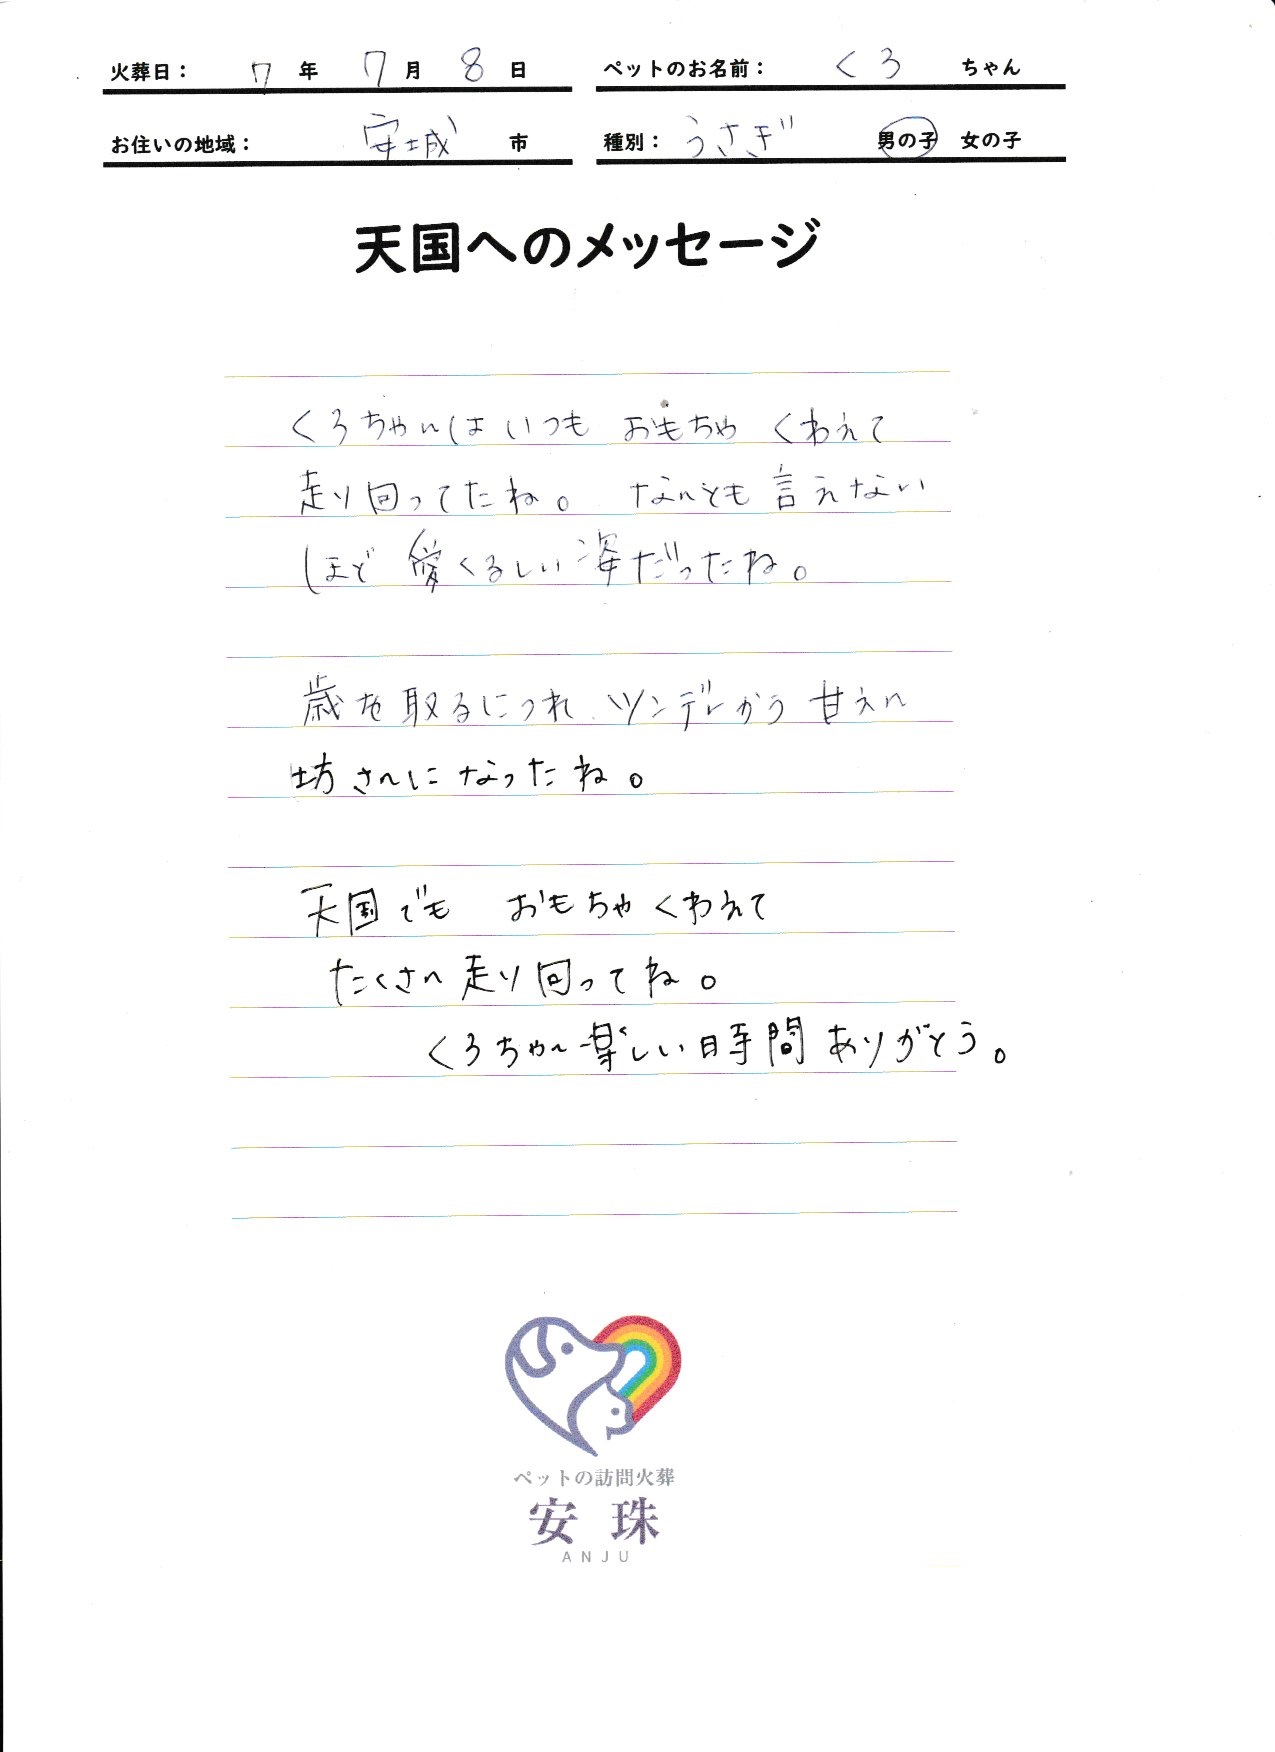 火葬日： 7 年 7 月 8 日
ペットのお名前： くろ ちゃん
お住いの地域： 安城 市
種別： うさぎ 男の子 女の子
天国へのメッセージ
くろちゃんは いつも おもちゃ くわえて
走り回ってたね。 なんとも 言えない
ほど 愛くるしい 姿だったね。
歳を取るにつれ ツンデレから 甘えん
坊さんに なったね。
天国でも おもちゃくわえて
たくさん 走り回ってね。
くろちゃん 楽しい時間 ありがとう。
ペットの訪問火葬
安珠
ANJU